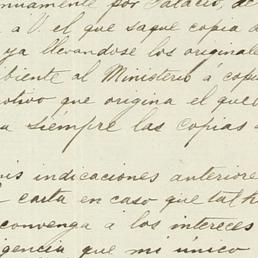 nuamente por Palacio, de
a V. el que saque copia d
ya llevandose los originale
ibiente al Ministerio á copi
otivo que origina el que
a siempre las copias
is indicaciones anteriore
carta en caso que tal h
convenga a los intereces
igencia que mi único